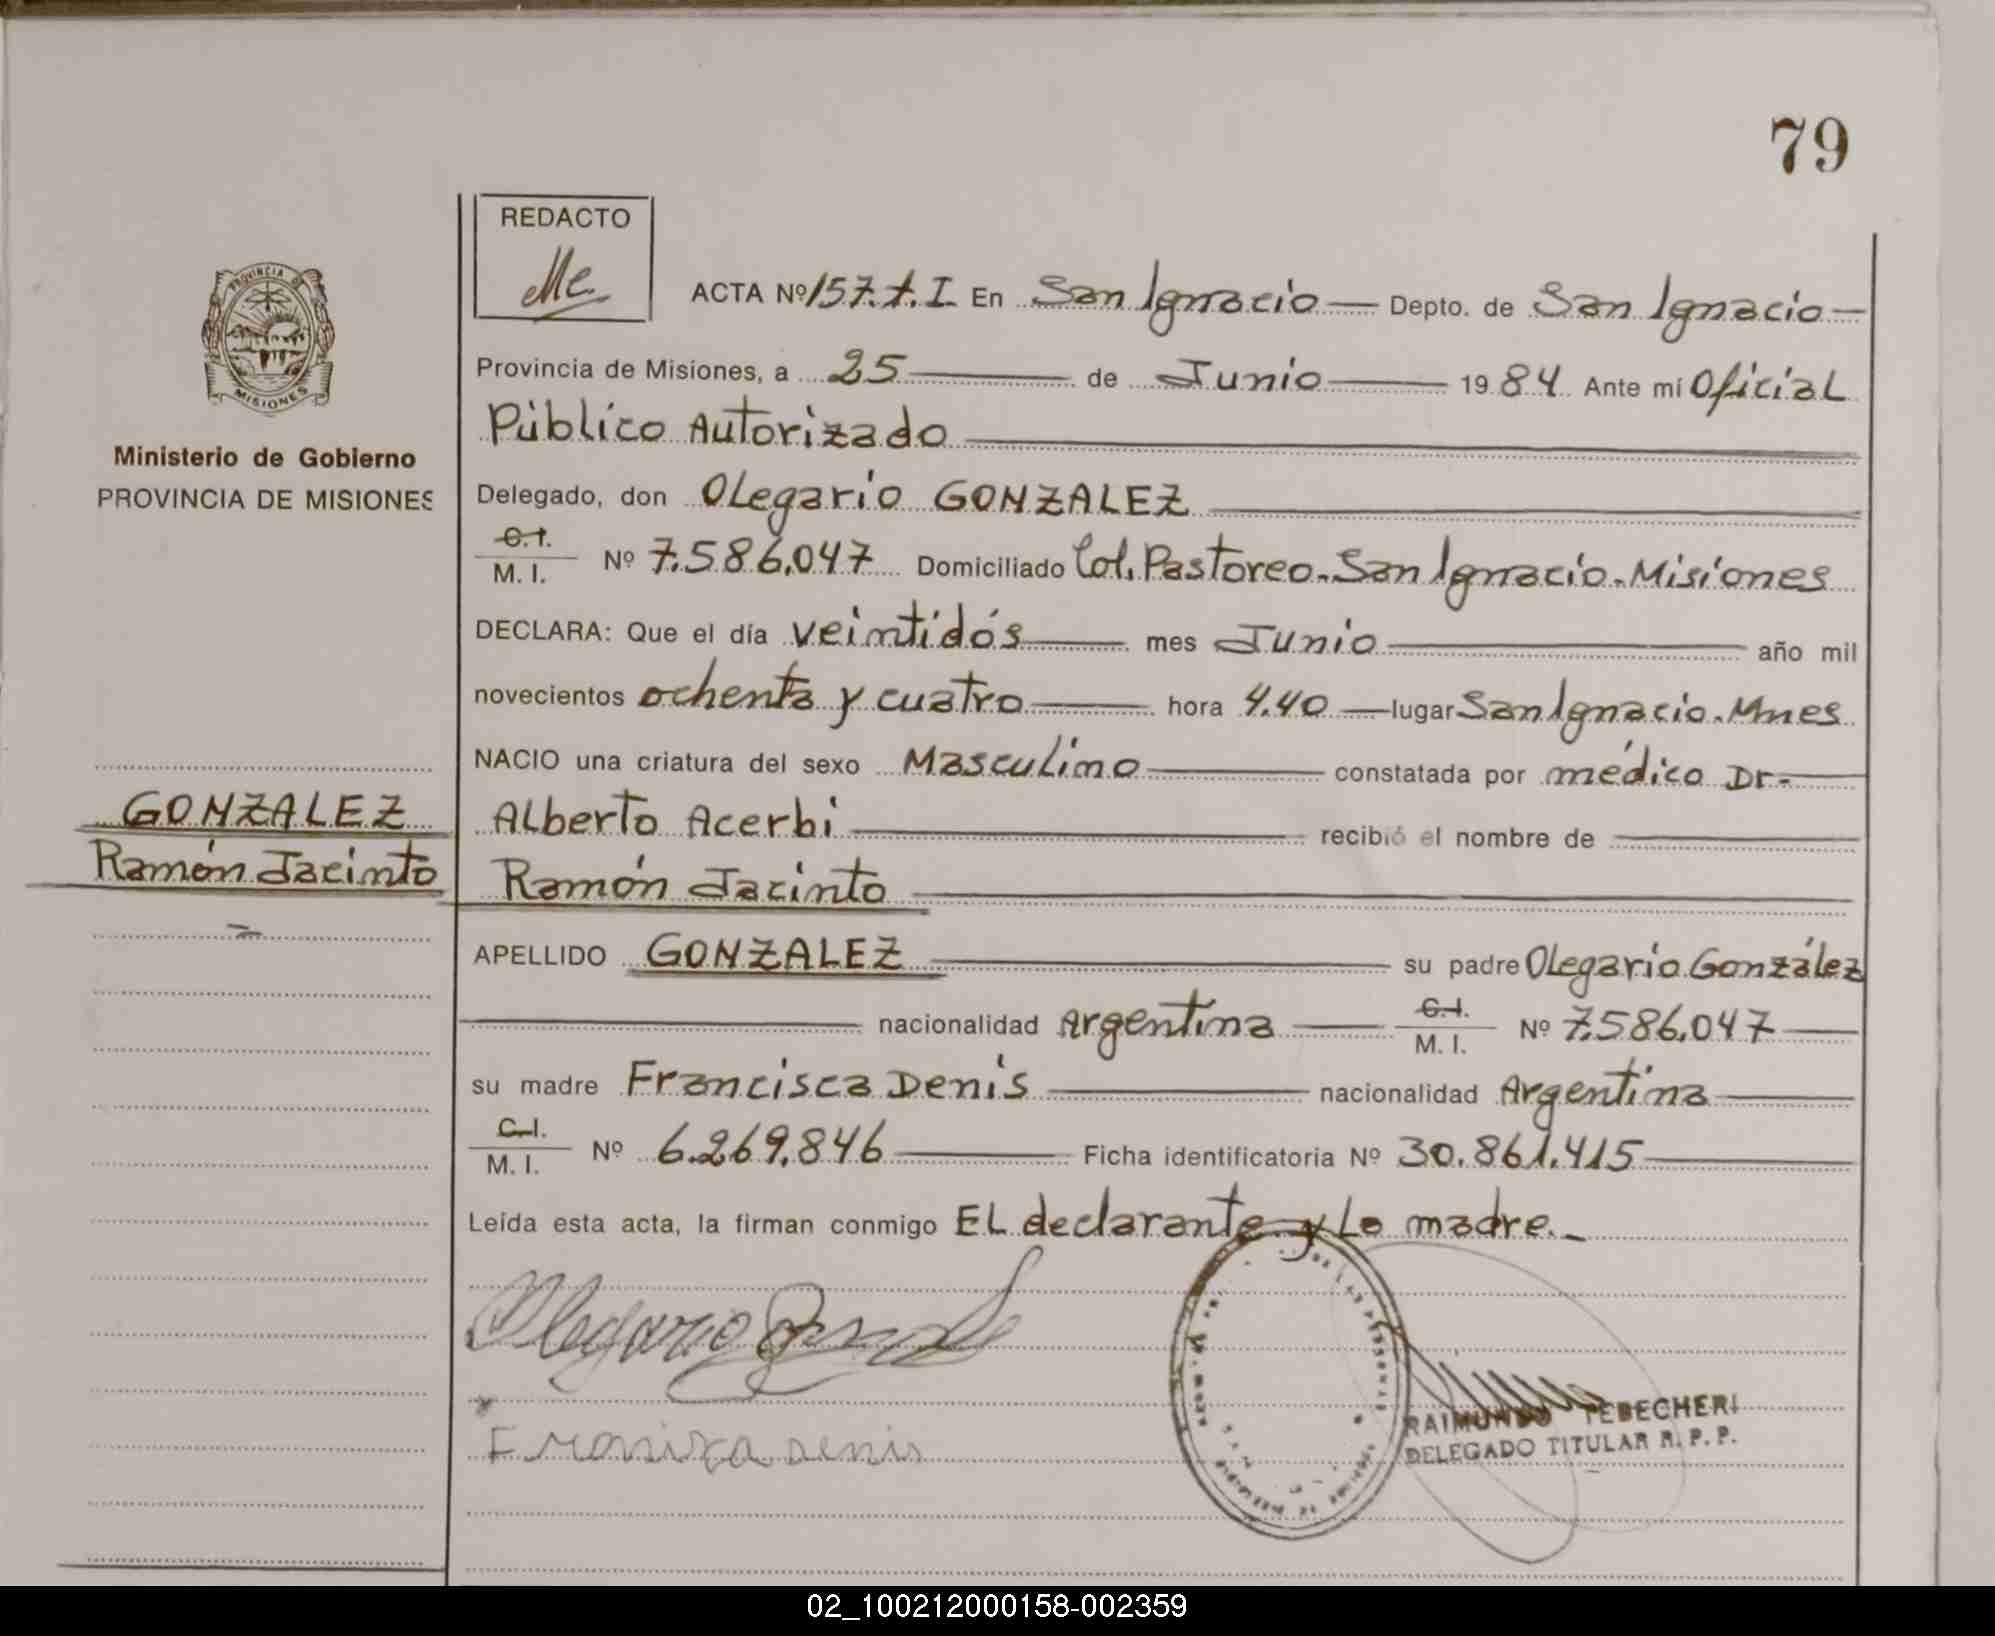 79
REDACTO
ACTA Nº 157.T.I. En San Ignacio — Depto. de San Ignacio —
Provincia de Misiones, a 25 de Junio 1984. Ante mí Oficial
Público Autorizado
Delegado, don Olegario GONZALEZ
C.I.
M. I. Nº 7.586.047 Domiciliado Col. Pastoreo. San Ignacio. Misiones
DECLARA: Que el día veintidós mes Junio año mil
novecientos ochenta y cuatro hora 4.40 — lugar San Ignacio. Mnes
NACIO una criatura del sexo Masculino constatada por médico Dr.
Alberto Acerbi recibió el nombre de
Ramón Jacinto
APELLIDO GONZALEZ su padre Olegario González
nacionalidad Argentina C.I.
M. I. Nº 7.586.047
su madre Francisca Denis nacionalidad Argentina
C.I.
M. I. Nº 6.269.846 Ficha identificatoria Nº 30.861.415
Leída esta acta, la firman conmigo EL declarante y La madre.
PROVINCIA DE
MISIONES
Ministerio de Gobierno
PROVINCIA DE MISIONES
GONZALEZ
Ramón Jacinto
DE LAS PERSONAS
RAIMUNDO TEBECHERI
DELEGADO TITULAR R. P. P.
02_100212000158-002359